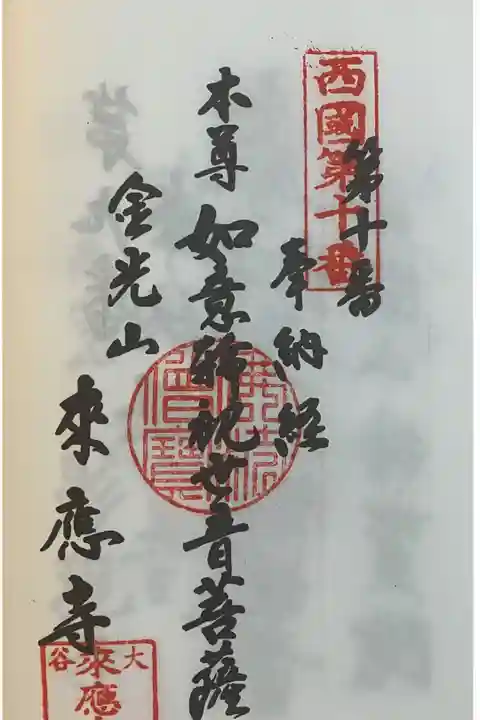 西國第十番
第十番
奉納経
本尊 如意輪観世音菩薩
金光山
來應寺
佛法僧寳
大谷
來應